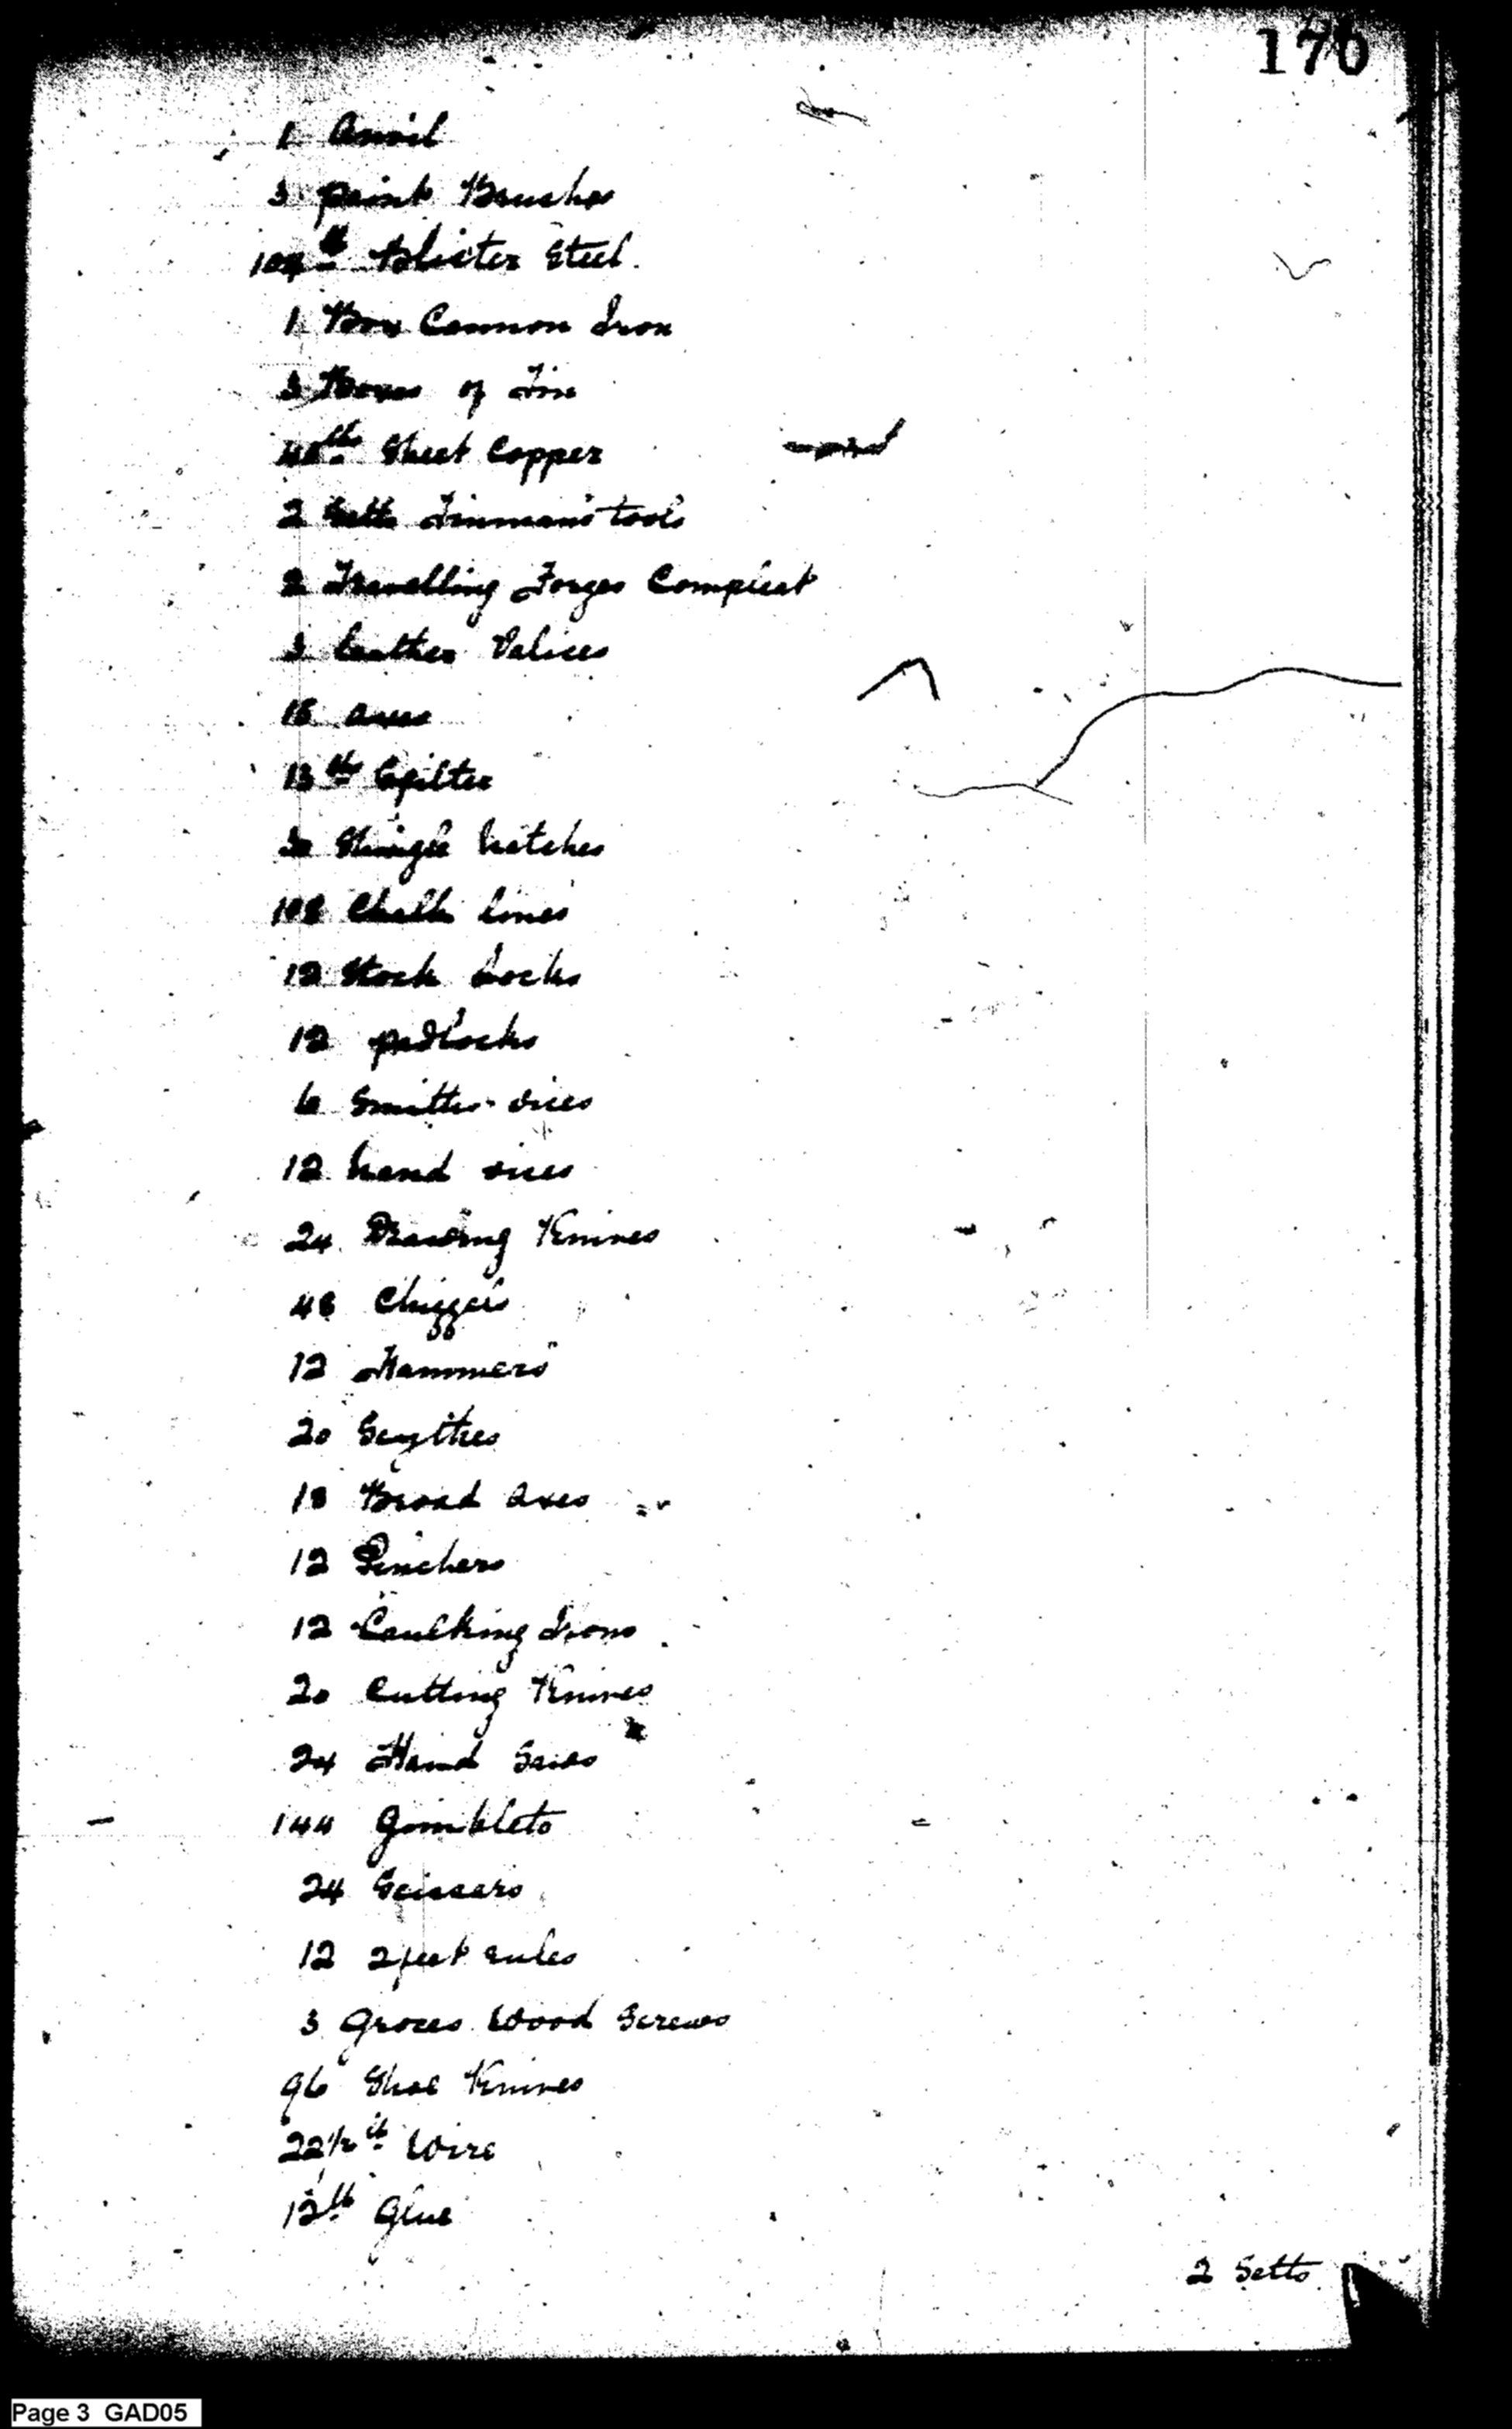 170
1 Anvil
3 paint Brushes
104 lb Blister Steel.
1 Box Cannon Iron
3 Boxes of Tin
lbs Sheet Copper
2 Setts Tinman's tools
2 Travelling Forges Compleat
3 leather Valices
15 axes
13 lbs Spilter
30 Shingle hatches
108 Chalk lines
12 Stock Locks
12 padlocks
6 Smiths vices
12 hand vices
24 Drawing Knives
48 Chizzels
12 Hammers
20 Scythes
18 Broad axes
12 Pinchers
12 Caulking Irons
20 Cutting Knives
24 Hand Saws
144 Gimblets
24 Scissars
12 2 feet rules
3 Groces Wood Screws
96 Shoe Knives
22 1/2 lb Wire
12 lb Glue
2 Setts
Page 3 GAD05